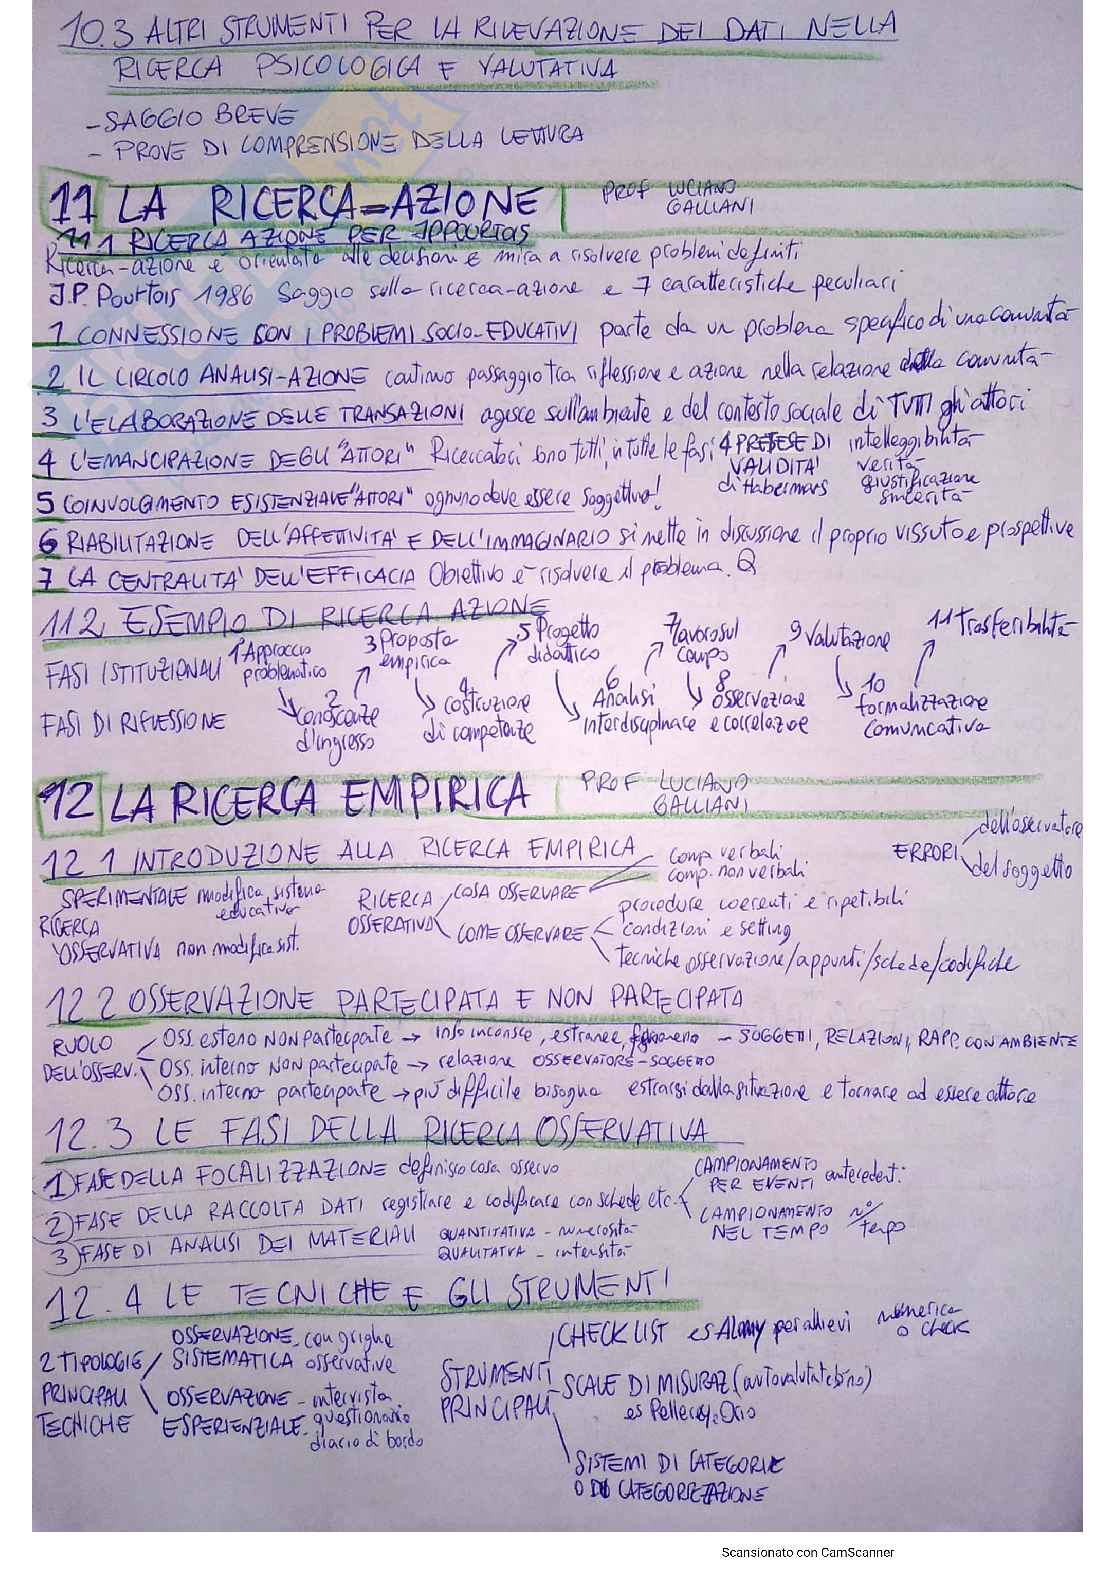 10.3 ALTRI STRUMENTI PER LA RILEVAZIONE DEI DATI NELLA
RICERCA PSICOLOGICA E VALUTATIVA
- SAGGIO BREVE
- PROVE DI COMPRENSIONE DELLA LETTURA
11 LA RICERCA-AZIONE
PROF LUCIANO
GALLIANI
11 1 RICERCA AZIONE PER JPPOURTOIS
Ricerca-azione è orientata alle decisioni e mira a risolvere problemi definiti
J.P. Pourtois 1986 Saggio sulla ricerca-azione e 7 caratteristiche peculiari
1 CONNESSIONE CON I PROBLEMI SOCIO-EDUCATIVI parte da un problema specifico di una comunità
2 IL CIRCOLO ANALISI-AZIONE continuo passaggio tra riflessione e azione nella relazione della comunità
3 L'ELABORAZIONE DELLE TRANSAZIONI agisce sull'ambiente e del contesto sociale di TUTTI gli attori
4 L'EMANCIPAZIONE DEGLI "ATTORI" Ricercatori sono tutti, in tutte le fasi 4 PRETESE DI intelleggibilità
VALIDITA' verità
di Habermars giustificazione
sincerità
5 COINVOLGIMENTO ESISTENZIALE "ATTORI" ognuno deve essere soggettivo!
6 RIABILITAZIONE DELL'AFFETTIVITA' E DELL'IMMAGINARIO si mette in discussione il proprio vissuto e prospettive
7 LA CENTRALITA' DELL'EFFICACIA Obiettivo è risolvere il problema.
11 2 ESEMPIO DI RICERCA AZIONE
FASI ISTITUZIONALI 1 Approccio problematico 3 Proposta empirica 5 Progetto didattico 7 lavoro sul campo 9 Valutazione 11 Trasferibilità
FASI DI RIFLESSIONE 2 conoscenze d'ingresso 4 costruzione di competenze 6 Analisi interdisciplinare 8 osservazione e correlazione 10 formalizzazione comunicativa
12 LA RICERCA EMPIRICA
PROF LUCIANO
GALLIANI
12 1 INTRODUZIONE ALLA RICERCA EMPIRICA
ERRORI dell'osservatore
del soggetto
RICERCA
SPERIMENTALE modifica sistema educativo
OSSERVATIVA non modifica sist.
RICERCA OSSERATIVA
COSA OSSERVARE comp verbali
comp. non verbali
COME OSSERVARE procedure coerenti e ripetibili
condizioni e setting
tecniche osservazione/appunti/schede/codifiche
12 2 OSSERVAZIONE PARTECIPATA E NON PARTECIPATA
RUOLO DELL'OSSERV.
Oss. esterno NON partecipante → info inconsce, estranee, - SOGGETTI, RELAZIONI, RAPP. CON AMBIENTE
Oss. interno NON partecipante → relazione OSSERVATORE-SOGGETTO
Oss. interno partecipante → più difficile bisogna estrarsi dalla situazione e tornare ad essere attore
12.3 LE FASI DELLA RICERCA OSSERVATIVA
1) FASE DELLA FOCALIZZAZIONE definisco cosa osservo
2) FASE DELLA RACCOLTA DATI registrare e codificare con schede etc.
CAMPIONAMENTO PER EVENTI antecedenti
CAMPIONAMENTO NEL TEMPO n°/tempo
3) FASE DI ANALISI DEI MATERIALI QUANTITATIVA - numerosità
QUALITATIVA - intensità
12.4 LE TECNICHE E GLI STRUMENTI
2 TIPOLOGIE PRINCIPALI TECNICHE
OSSERVAZIONE SISTEMATICA - con griglie osservative
OSSERVAZIONE ESPERIENZIALE - intervista
questionario
diario di bordo
STRUMENTI PRINCIPALI
CHECK LIST es per allievi numerica
o check
SCALE DI MISURAZ (autovalutatebino)
es Pellerey, Orio
SISTEMI DI CATEGORIE
O DI CATEGORIZZAZIONE
Scansionato con CamScanner